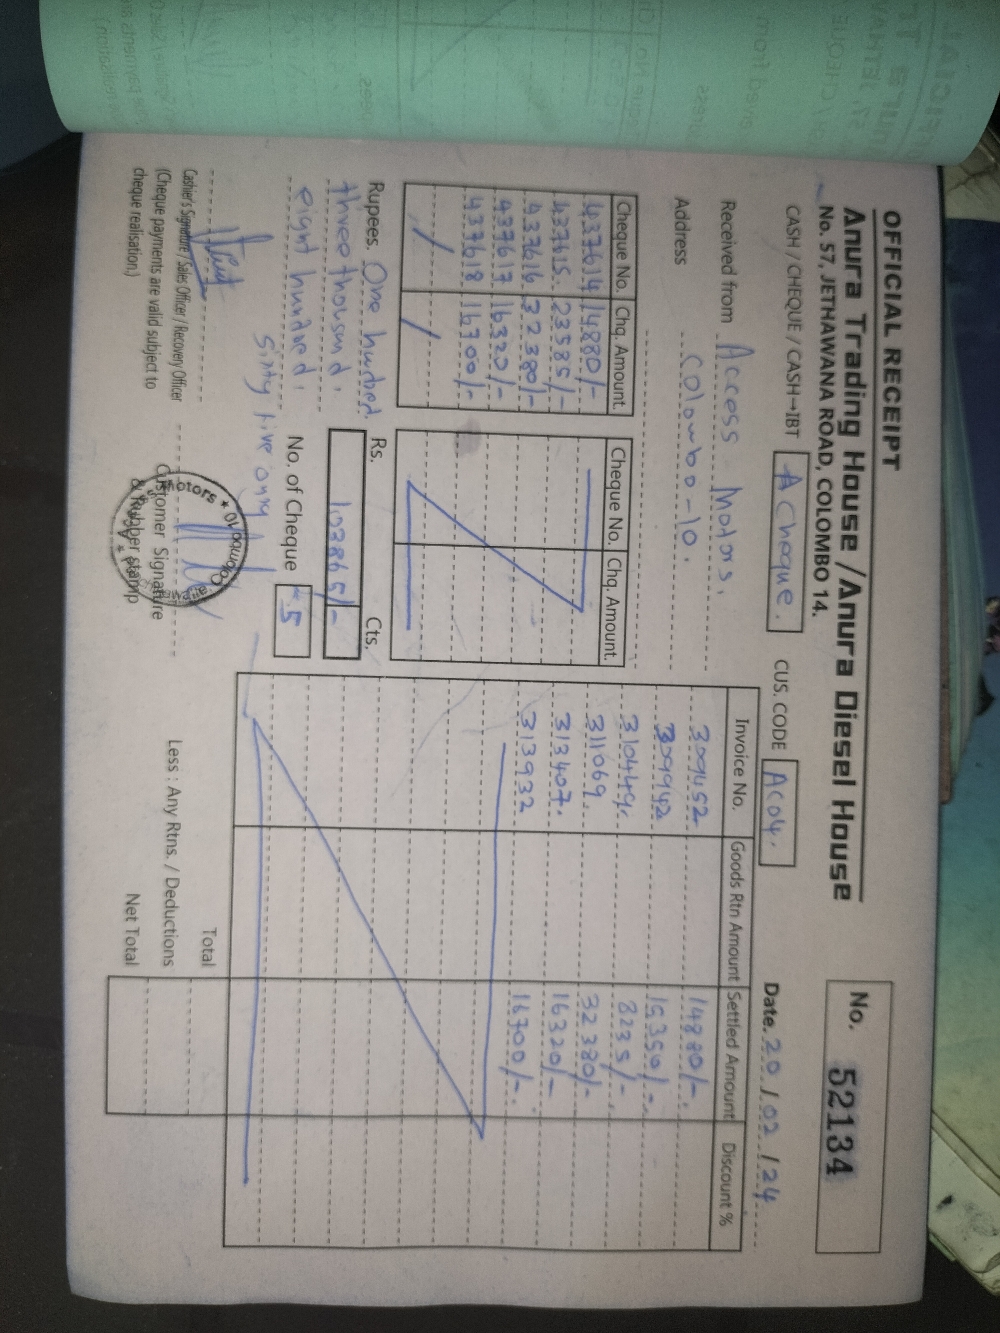 OFFICIAL RECEIPT
Anura Trading House /Anura Diesel House
No. 57, JETHAWANA ROAD, COLOMBO 14.
No. 52134
CASH / CHEQUE / CASH→IBT A cheque.
CUS. CODE AC04.
Date. 20 / 02 / 24
Received from Access Motors.
Address Colombo-10.
Cheque No. Chq. Amount.
437614 14880/-
437615. 23585/-
437616 32380/-
437617 16320/-
437618 16700/-
Cheque No. Chq. Amount.
Rupees. One hundred.
three thousand.
eight hundred.
sixty five only
Rs. Cts.
103865/-
No. of Cheque 5
Invoice No. Goods Rtn Amount Settled Amount Discount %
309452 14880/-
309942 15350/-
310449. 8235/-
311069. 32380/-
313407. 16320/-
313932 16700/-
Total
Less : Any Rtns. / Deductions
Net Total
Cashier's Signature / Sales Officer / Recovery Officer
(Cheque payments are valid subject to
cheque realisation.)
Customer Signature
& Rubber stamp
Motors * Colombo 10